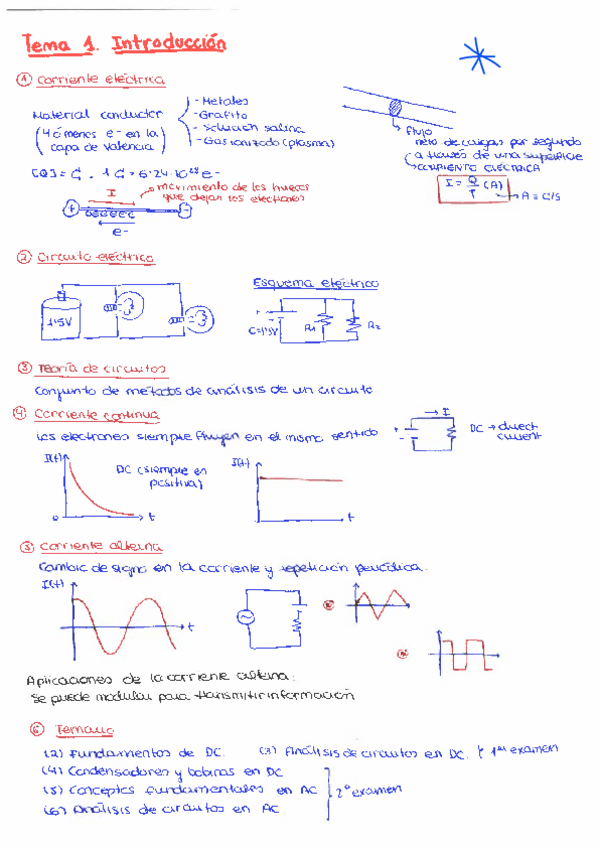 Tema 1. Introducción
① Corriente eléctrica
Material conductor
(4 ó menos e- en la
capa de valencia)
- Metales
- Grafito
- Solución salina
- Gas ionizado (plasma)
Flujo
neto de cargas por segundo
a través de una superficie
CORRIENTE ELÉCTRICA
I = Q/T (A)
A = C/s
[Q] = C . 1 C = 6'24 · 10¹⁸ e-
I
movimiento de los huecos
que dejan los electrones
+
-
e-
② Circuito eléctrico
Esquema eléctrico
1'5V
+
-
E=1'5V
R1
R2
③ Teoría de circuitos
Conjunto de métodos de análisis de un circuito
④ Corriente continua
Los electrones siempre fluyen en el mismo sentido
I
+
-
DC → direct
current
I(t)
DC (siempre en
positiva)
0
t
I(t)
t
⑤ Corriente alterna
Cambio de signo en la corriente y repetición periódica.
I(t)
t
Aplicaciones de la corriente alterna:
Se puede modular para transmitir información
⑥ Temario
(2) Fundamentos de DC. (3) Análisis de circuitos en DC. } 1er examen
(4) Condensadores y bobinas en DC
(5) Conceptos fundamentales en AC
(6) Análisis de circuitos en AC
2º examen